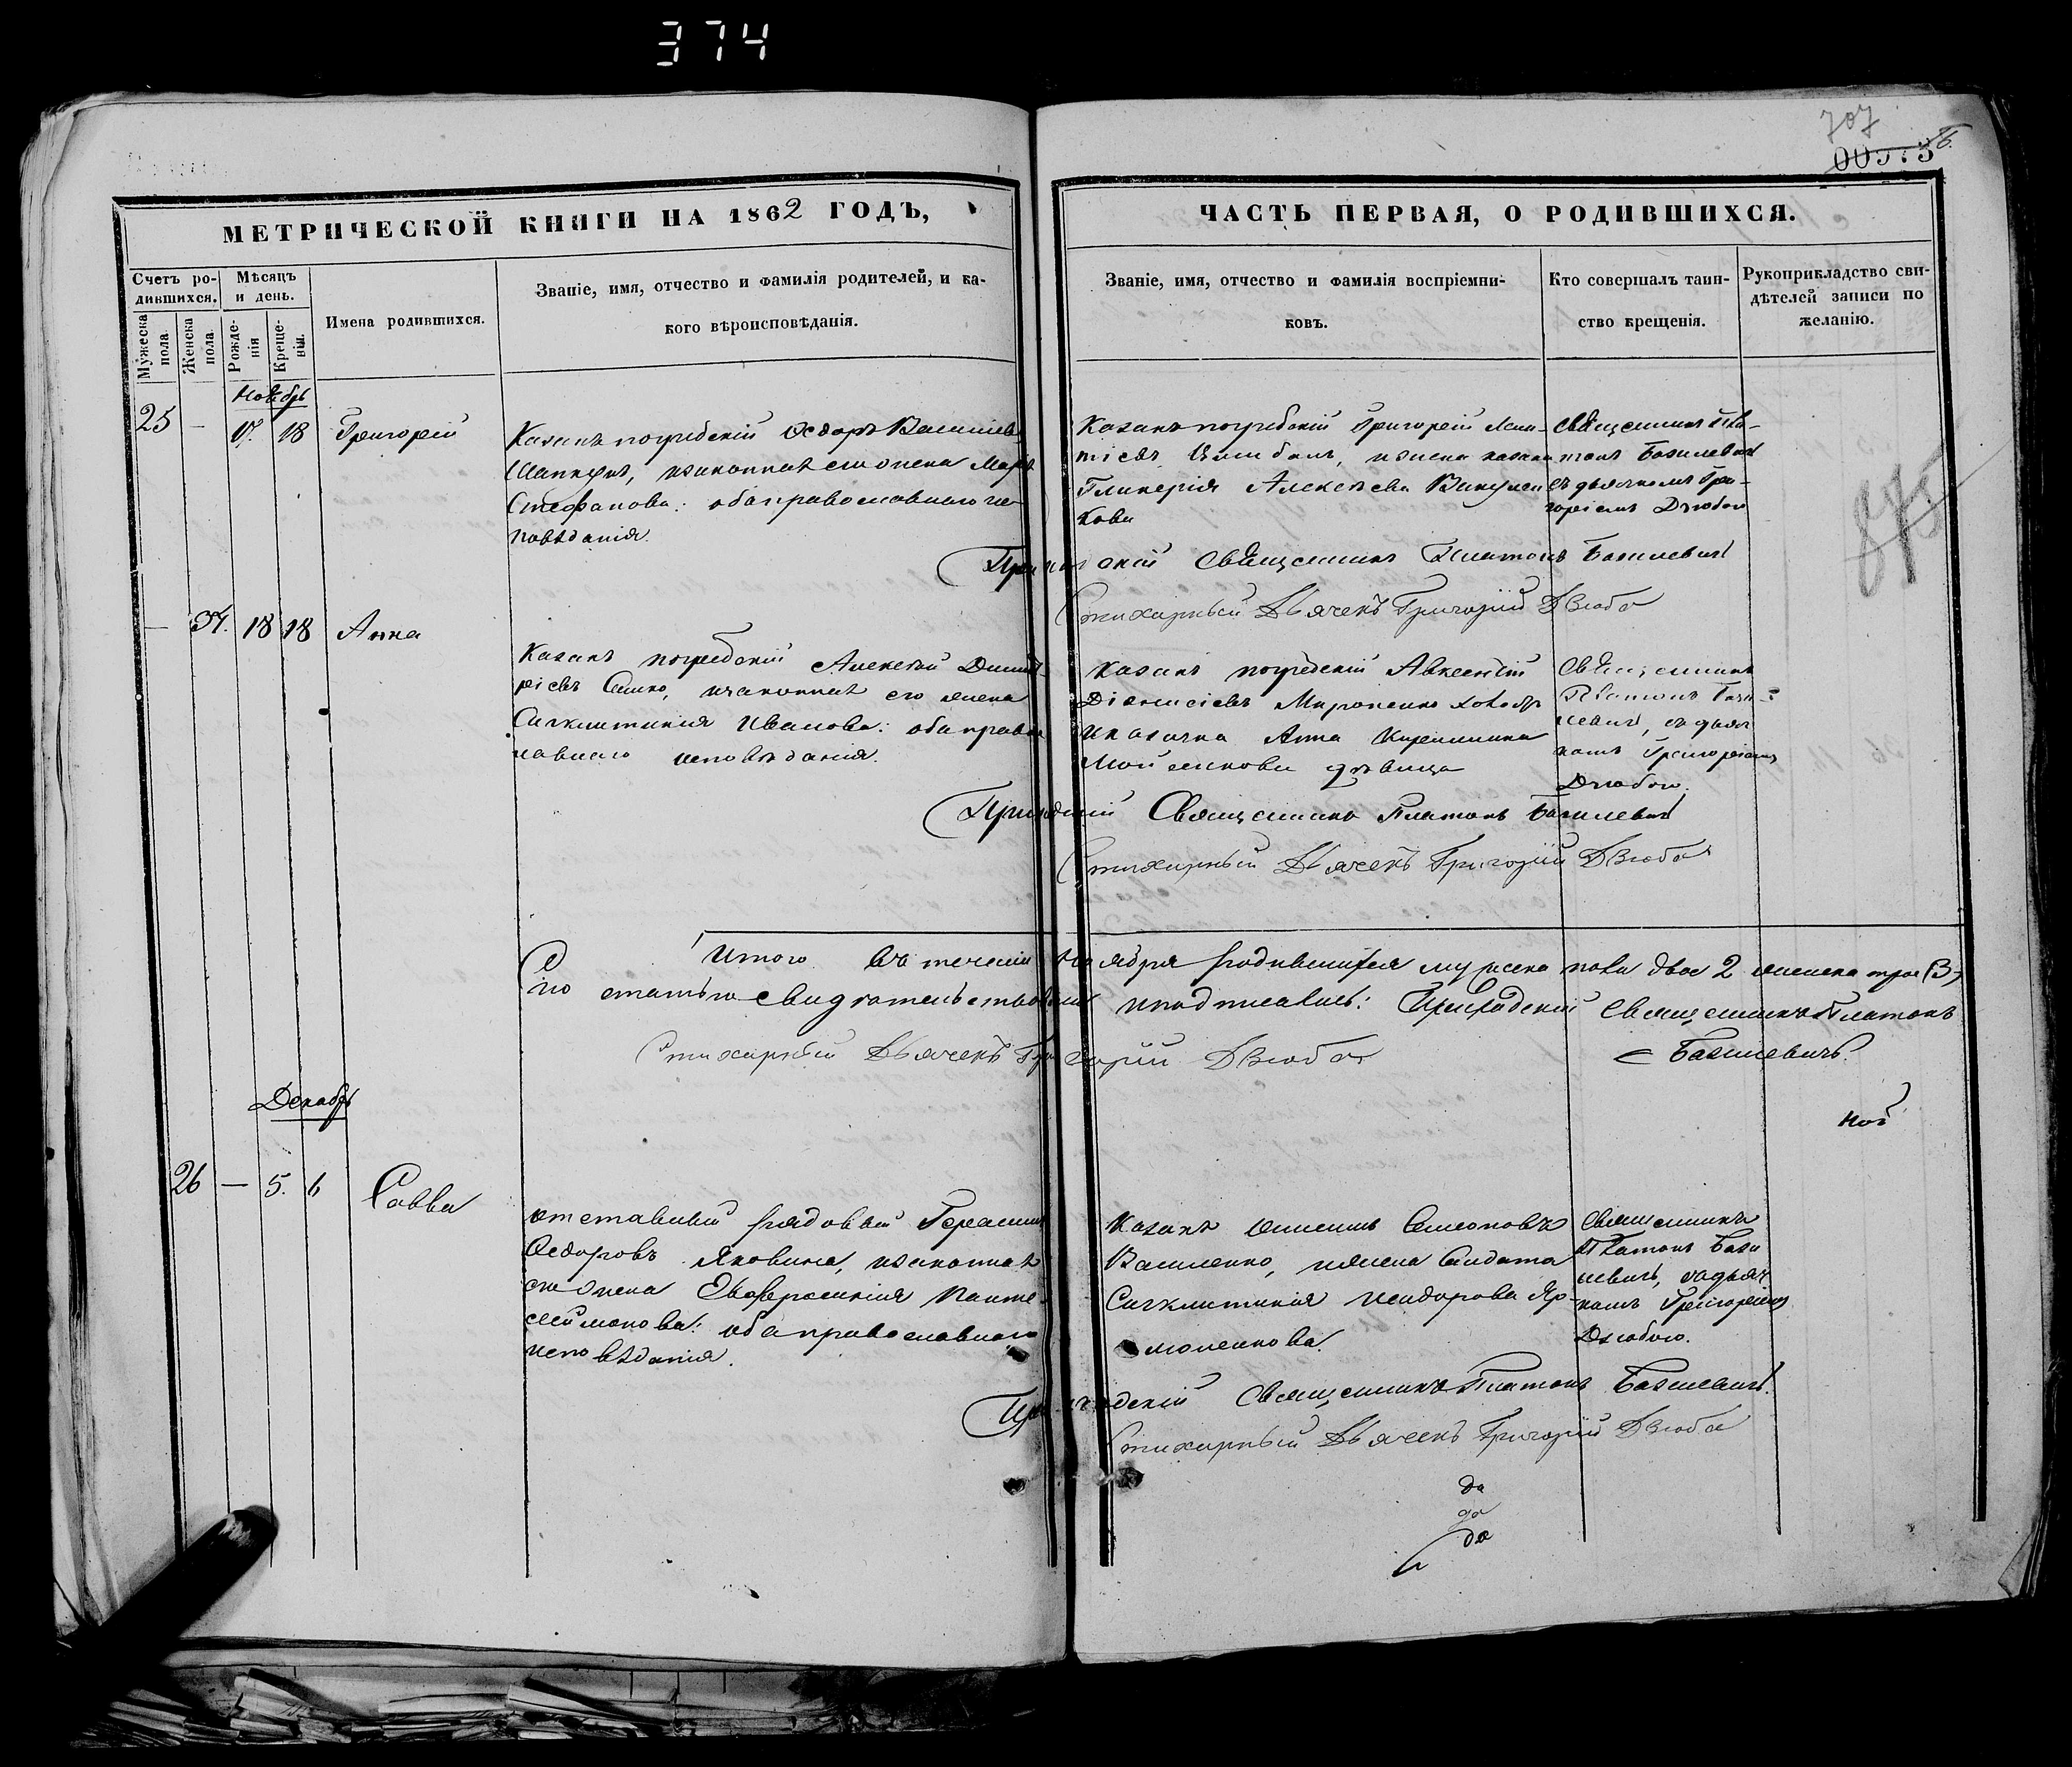 374
707
МЕТРИЧЕСКОЙ КНИГИ НА 1862 ГОДЪ,
ЧАСТЬ ПЕРВАЯ, О РОДИВШИХСЯ.
Счетъ родившихся.
Мужеска пола.
Женска пола.
Мѣсяцъ и день.
Рожденія
Крещенія.
Имена родившихся.
Званіе, имя, отчество и фамилія родителей, и ка-
кого вѣроисповѣданія.
Званіе, имя, отчество и фамилія воспріемни-
ковъ.
Кто совершалъ таин-
ство крещенія.
Рукоприкладство сви-
дѣтелей записи по
желанію.
Ноябрь
25 – 17. 18 Григорей
Казакъ погребскій Ѳедоръ
Стефанова: оба православнаго ис-
повѣданія.
Казакъ погребскій Григорей
Гликерія Алексѣева
кова
Священникъ Пла-
тонъ Базилевич
съ дьячкомъ Гри-
горіемъ Дзюбою
875
Приходскій Священникъ Платонъ Базилевич
Стихарный Дьяченъ Григорій Дзюба
— 37. 18 18 Анна
Казакъ погребскій Алексѣй Димит-
ріевъ Сашко, изаконная его жена
Сигклитикія Иванова: оба право
славнаго исповѣданія.
Казакъ погребскій Авксентій
Діонисіевъ Мироненко
иказачка Анна
дѣвица
Священникъ
Платонъ Бази-
левич, съ дьяч
комъ Григоріемъ
Дзюбою.
Приходскій Священникъ Платонъ Базилевич
Стихарный Дьяченъ Григорій Дзюба
Итого въ теченіи Ноября родившихся мужеска пола двое 2 женска трое (3)
Приходскій Священникъ Платонъ
Базилевичъ.
Стихарный Дьяченъ Григорій Дзюба
Декабрь
26 — 5. 6 Савва
отставный рядовый Герасимъ
Ѳедоровъ Яковина, изаконная
его жена Евфросинія Панте-
леимонова: оба православнаго
исповѣданія.
Казакъ Семеоновъ
Василенко, ижена Солдата
Сигклитикія Исидорова Яр-
моленкова.
Священникъ
Платонъ Бази
левич, съдьяч
комъ Григоріемъ
Дзюбою.
Приходскій Священникъ Платонъ Базилевичъ.
Стихарный Дьяченъ Григорій Дзюба
да
да
да